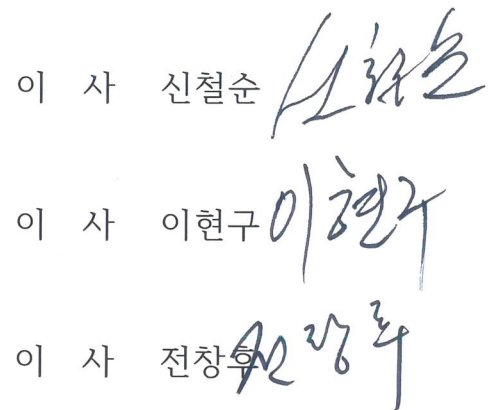 이 사 신철순 신철순
이 사 이현구 이현구
이 사 전창후 전창후